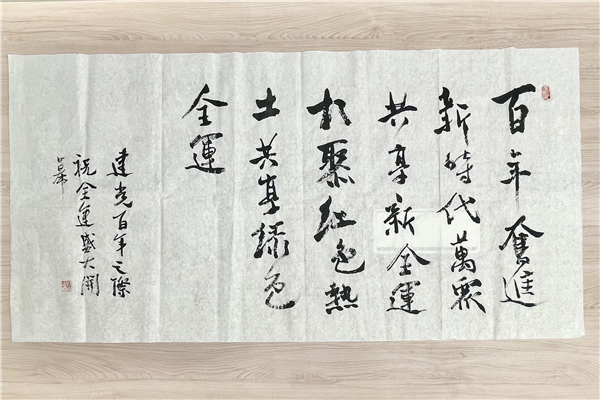 百年奮進
新時代萬眾
共享新全運
相聚紅色熱
土共享綠色
全運
建党百年之際
祝全運盛大開
幕